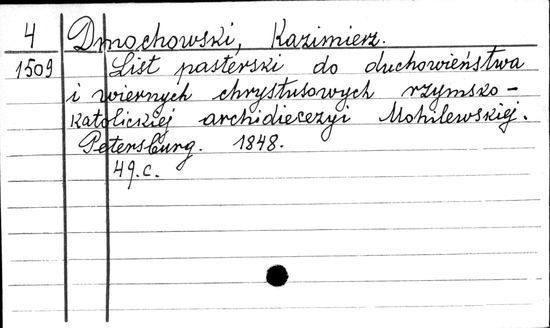 4 Dmochowski, Kazimierz.
1509 List pasterski do duchowieństwa
i wiernych chrystusowych rzymsko-
katolickiej archidiecezyi Mohilewskiej.
Petersburg. 1848.
49.c.